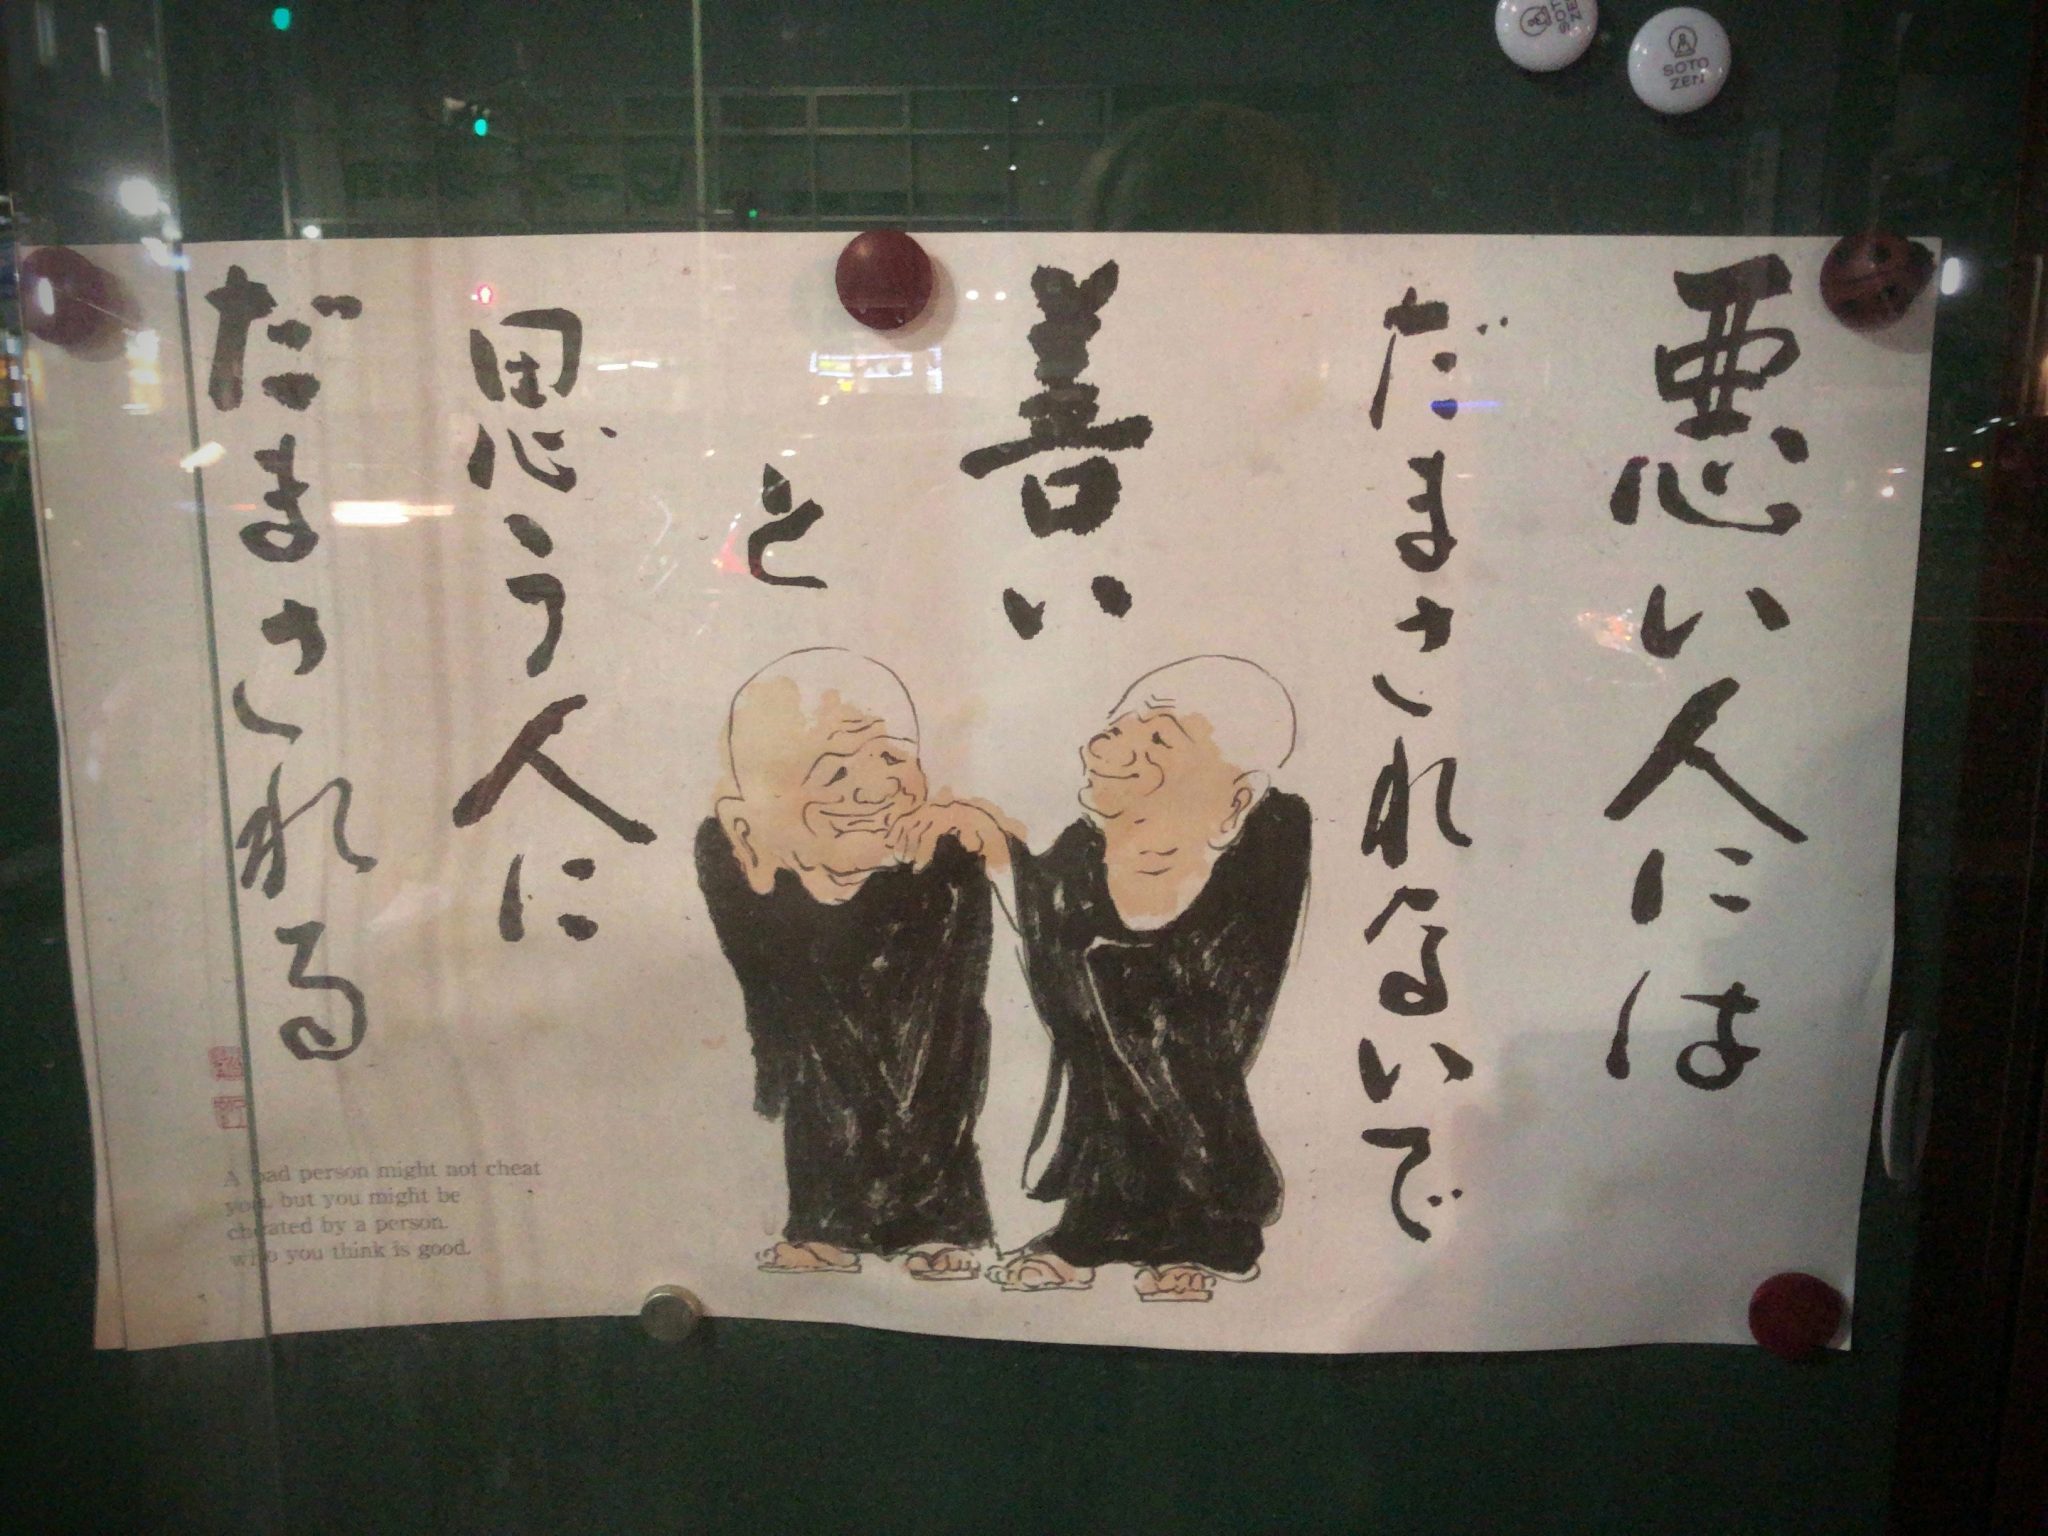 悪い人には
だまされないで
善い
と
思う人に
だまされる
A bad person might not cheat
you, but you might be
cheated by a person.
who you think is good.
SOTO
ZEN
SOTO
ZEN